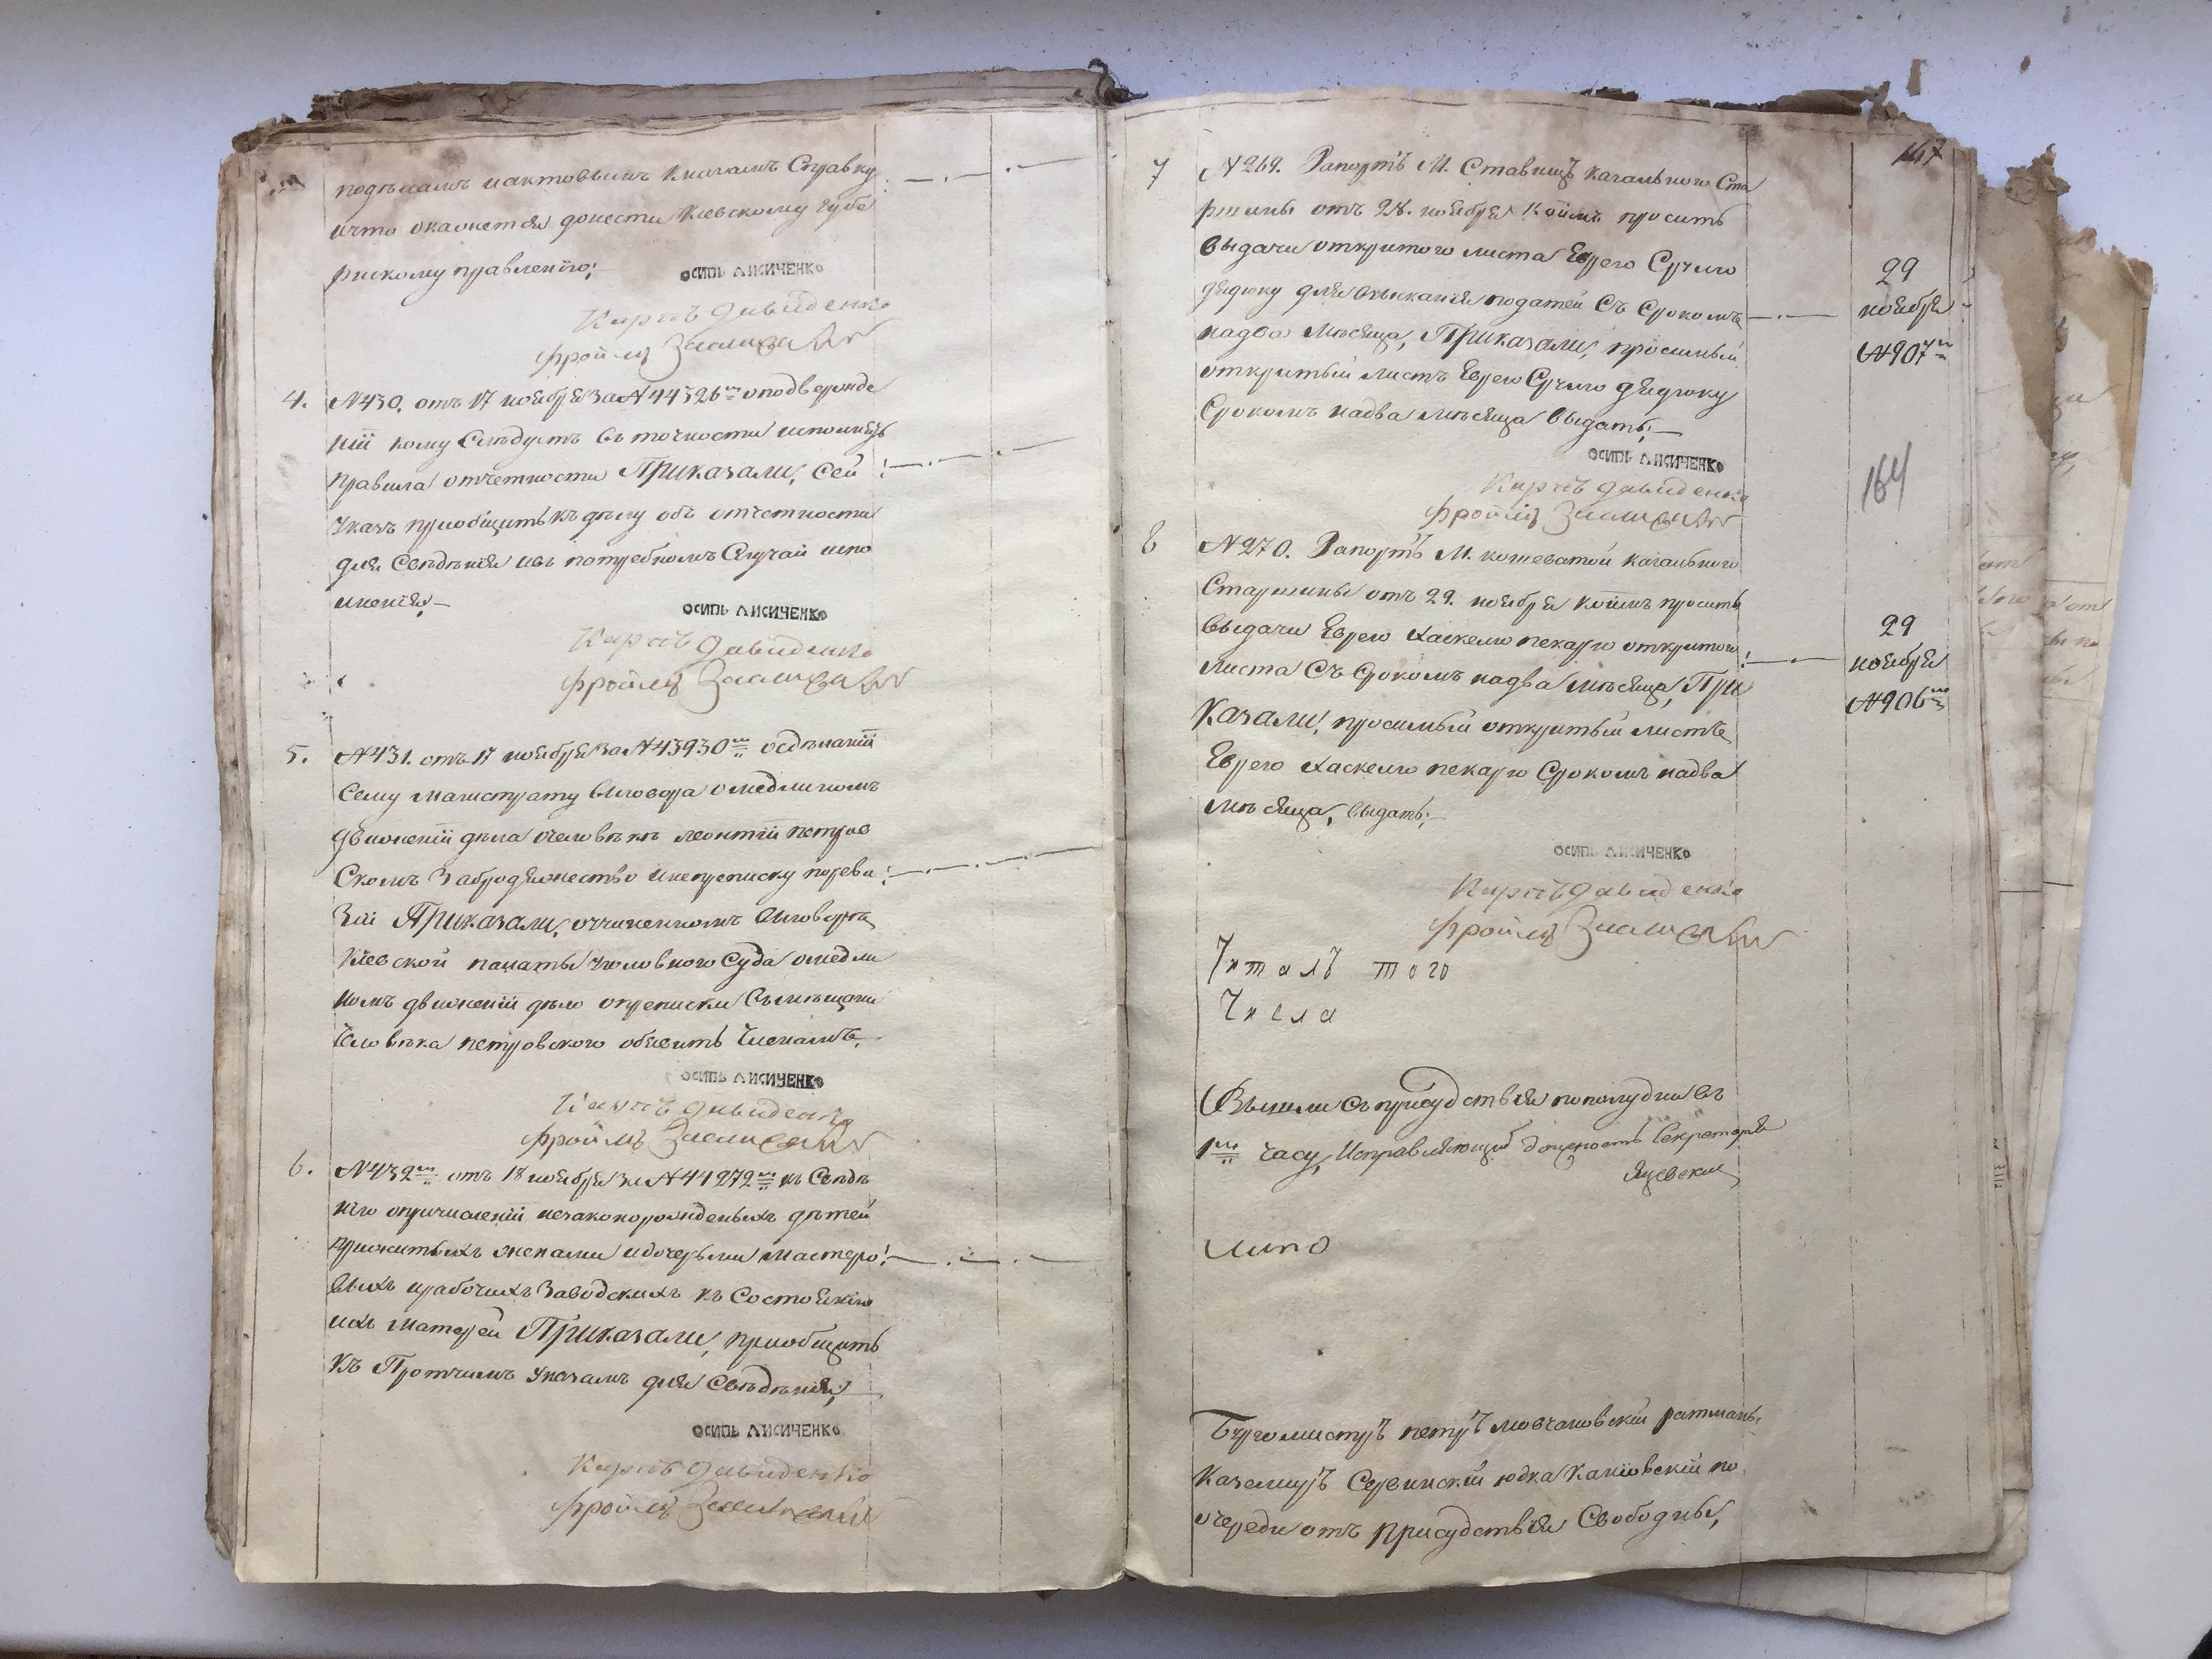 подѣламъ иактовымъ книгамъ Справку
ичто окажется донести Киевскому губе
рнскому правлению;
ОСИПЬ ЛИСИЧЕНКО
Карпъ Давиденко
фроимъ
4. №430. отъ 17 ноября За №44326м оподвержде
нiи кому Слѣдуетъ въ точности исполнять
правила отчетности Приказали, Сей
Указъ приобщить къ дѣлу объ отчетности
для Свѣдѣнiя ивъ потребномъ Случаи испо
лненiя,
ОСИПЬ ЛИСИЧЕНКО
Карпъ Давиденко
фроимъ
5. №431. отъ 17 ноября За №43930м осдѣланiи
Сему магистрату выговора омедлиномъ
движенiи дѣла очеловѣкѣ леонтiи петров
Скомъ Забродяжество
Приказали, оучиненномъ выговорѣ
Кiевской палаты уголовного Суда омедли
номъ движенiи дѣло
человѣка петровского объявить Членамъ,
ОСИПЬ ЛИСИЧЕНКО
Карпъ Давиденко
фроимъ
6. №432м отъ 18 ноября За №44272м къ Свѣдѣ
нiю опричисленiи незаконорожденыхъ дѣтей
прижитыхъ женами идочерьми мастеро
выхъ ирабочихъ Заводскихъ къ Состоянiю
ихъ матерей Приказали, приобщить
Къ Протчимъ указамъ для Свѣдѣнiя,
ОСИПЬ ЛИСИЧЕНКО
Карпъ Давиденко
фроимъ
167
7 №269. Рапортъ М. Ставищъ кагального Ста
ршины отъ 28. ноября Коимъ просить
выдачи откритого листа Еврею Срулю
дядюку для взысканiя податей Съ Срокомъ
надва мѣсяца, Приказали, просимый
откритый листъ Еврею Срулю дядюку
Срокомъ надва мѣсяца выдать;
29
ноября
№907м
ОСИПЬ ЛИСИЧЕНКО
Карпъ Давиденко
фроимъ
164
8 №270. Рапортъ М. кошеватой кагального
Старшины отъ 29. ноября коимъ просить
выдачи Еврею хаскелю пекарю откритого
листа Съ Срокомъ надва мѣсяца, При
Казали, просимый откритый листъ
Еврею хаскелю пекарю Срокомъ надва
мѣсяца, выдать;
29
ноября
№906м
ОСИПЬ ЛИСИЧЕНКО
Карпъ Давиденко
фроимъ
Читалъ того
Числа
Вышли Съ присудствiя пополудни въ
1м часу, Исправляющiй должность Секретаря
Яцевскiй
Бургомистръ петръ мовчановскiй ратманы
Каземиръ Сервинскiй юдка Канiовскiй по
очереди отъ присудствiя Свободны,